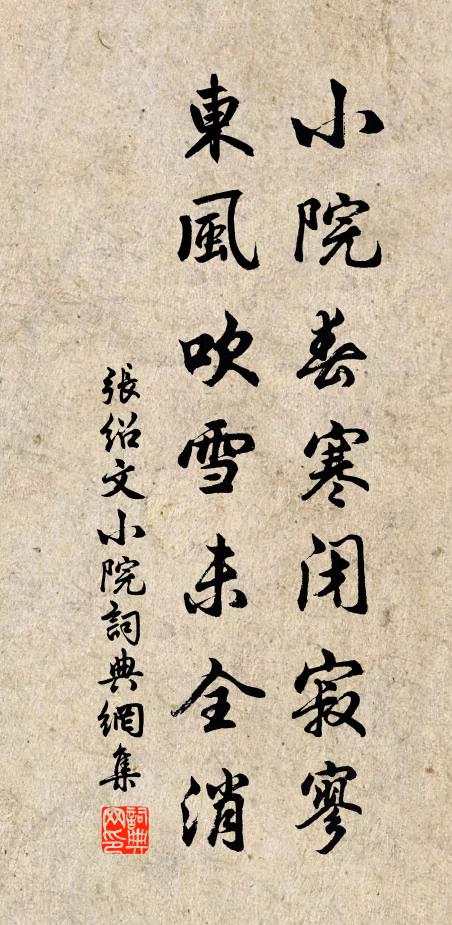 小院春寒閉寂寥
東風吹雪未全消
張紹文小院詞典網集
詞典網印